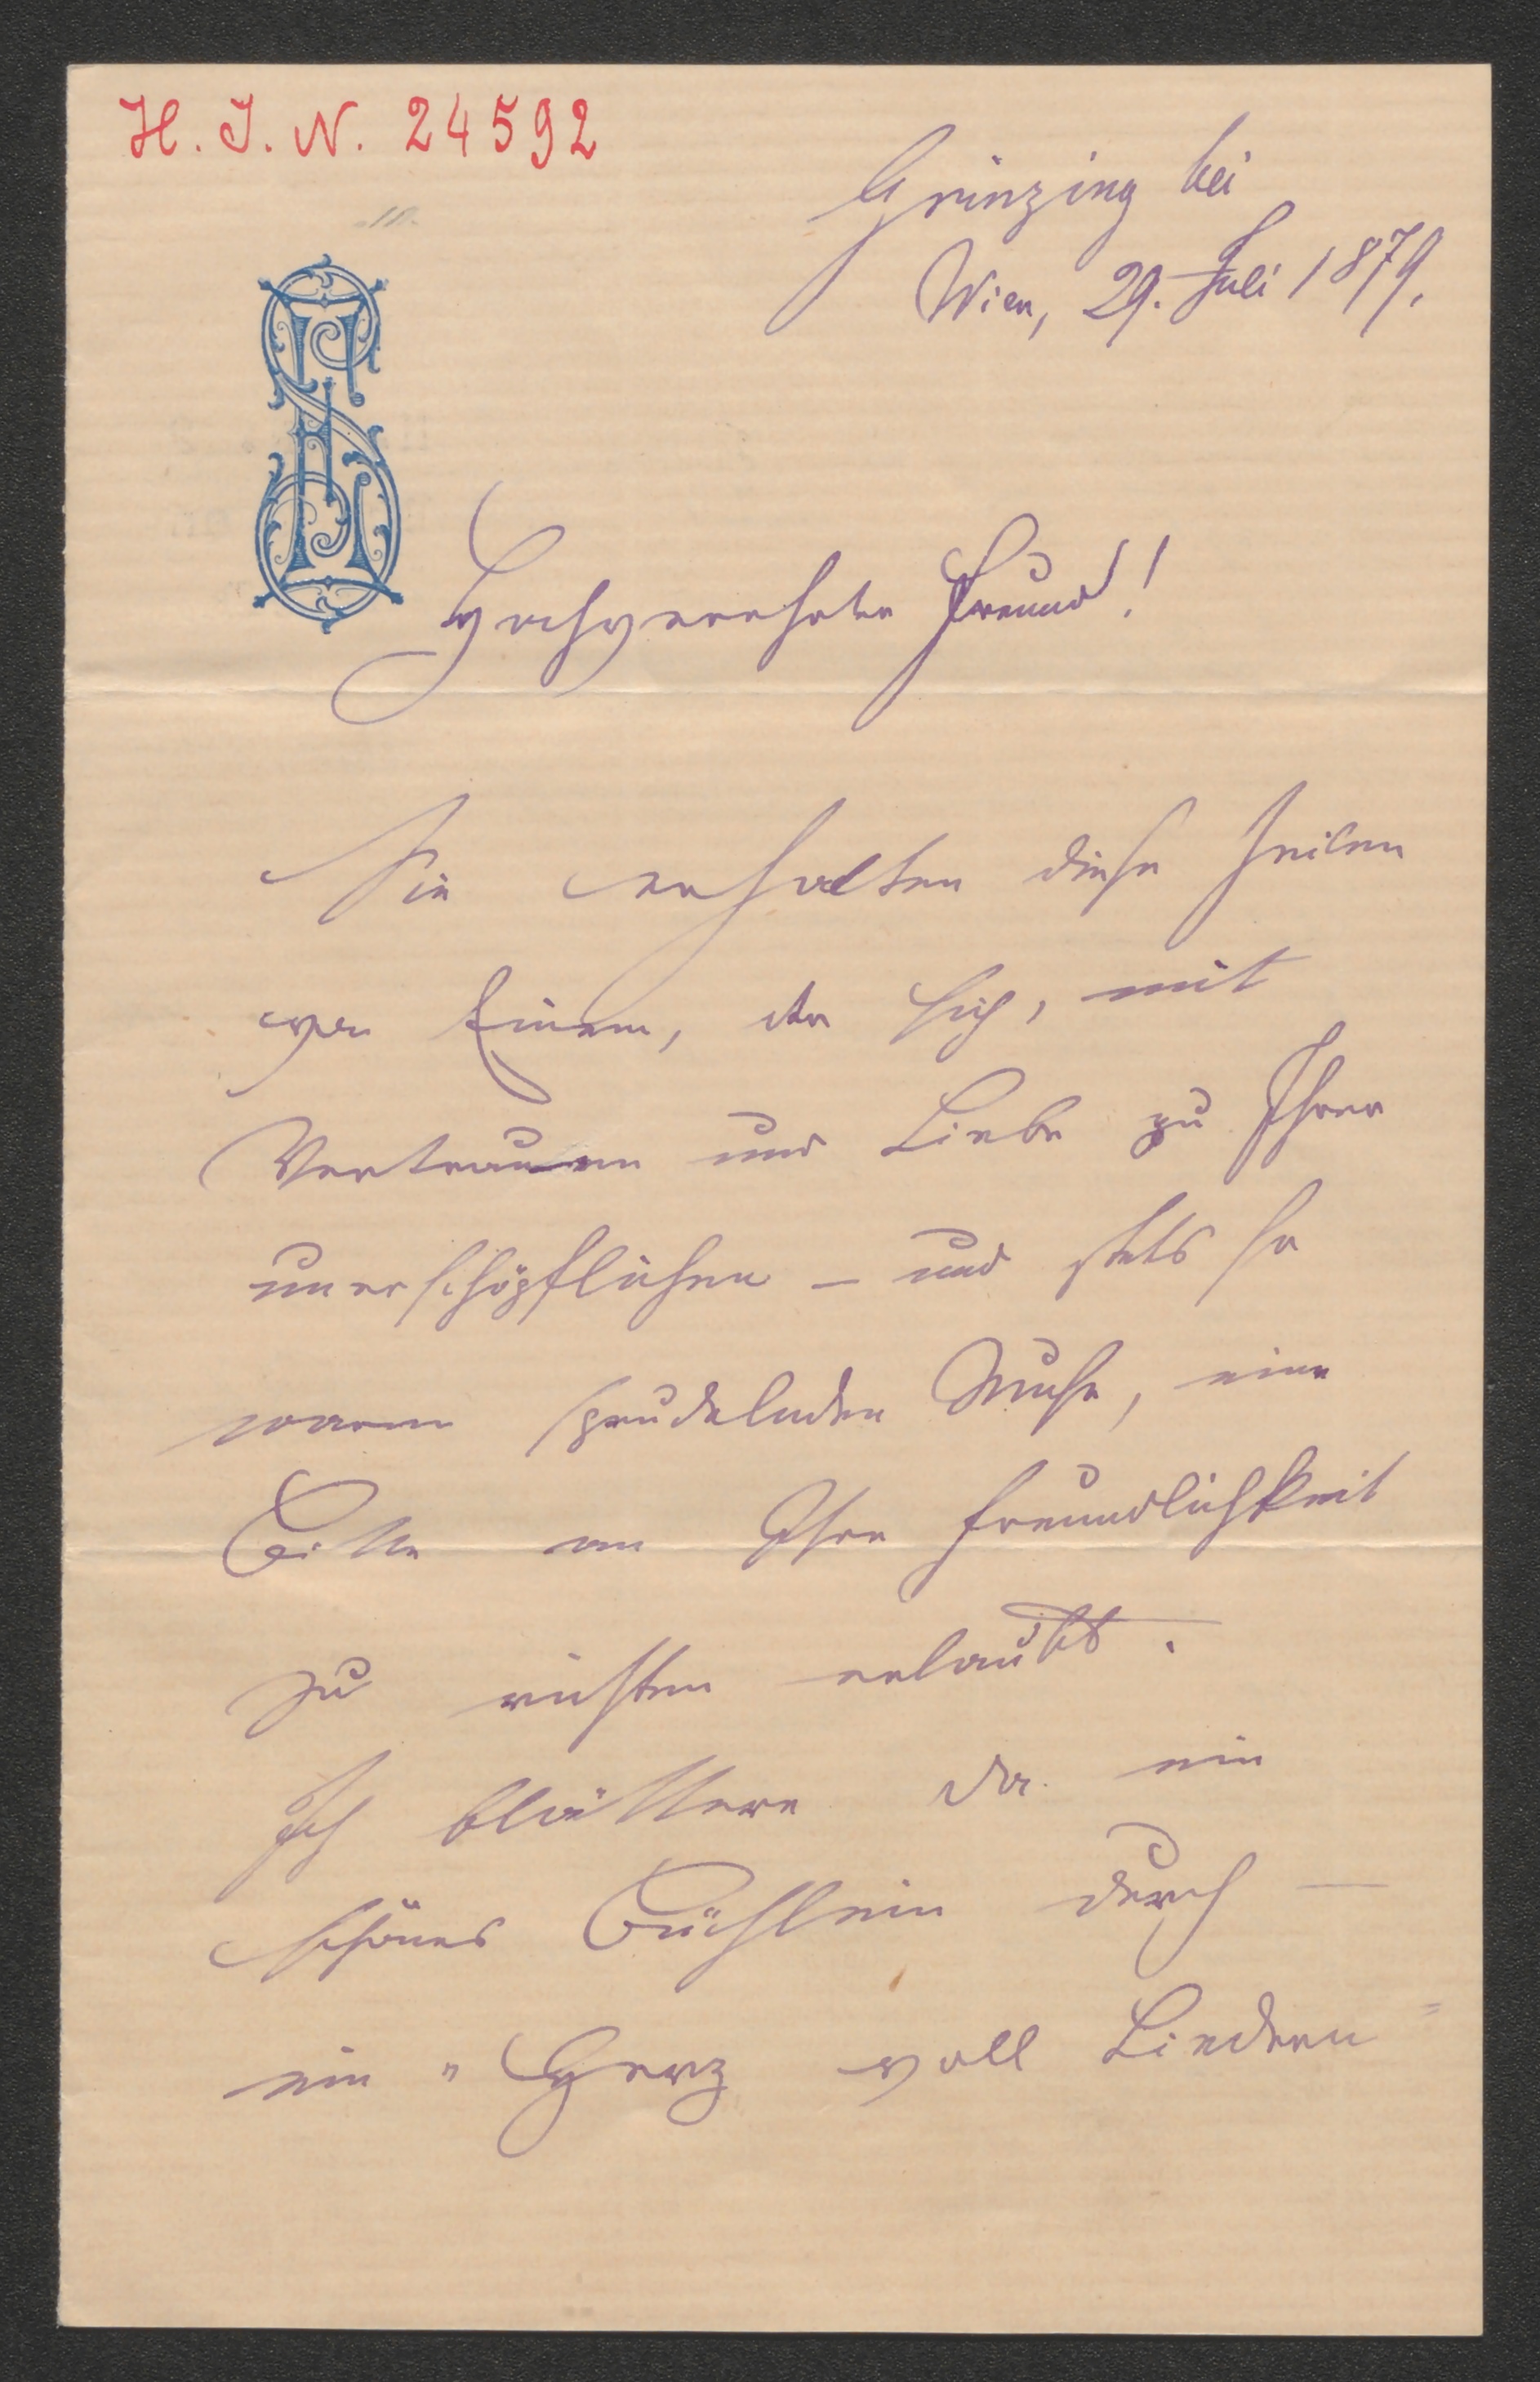 H. I. N. 24592
Grinzing bei
Wien, 29. Juli 1879.
Hochverehrter Freund!
Sie erhalten diese Zeilen
von Einem, der sich, mit
Vertrauen und Liebe zu Ihrer
unerschöpflichen – und stets so
warm sprudelnden Muse, eine
Bitte an Ihre Freundlichkeit
zu richten erlaubt.
Ich blättere da ein
schönes Büchlein durch –
ein "Herz voll Liedern"